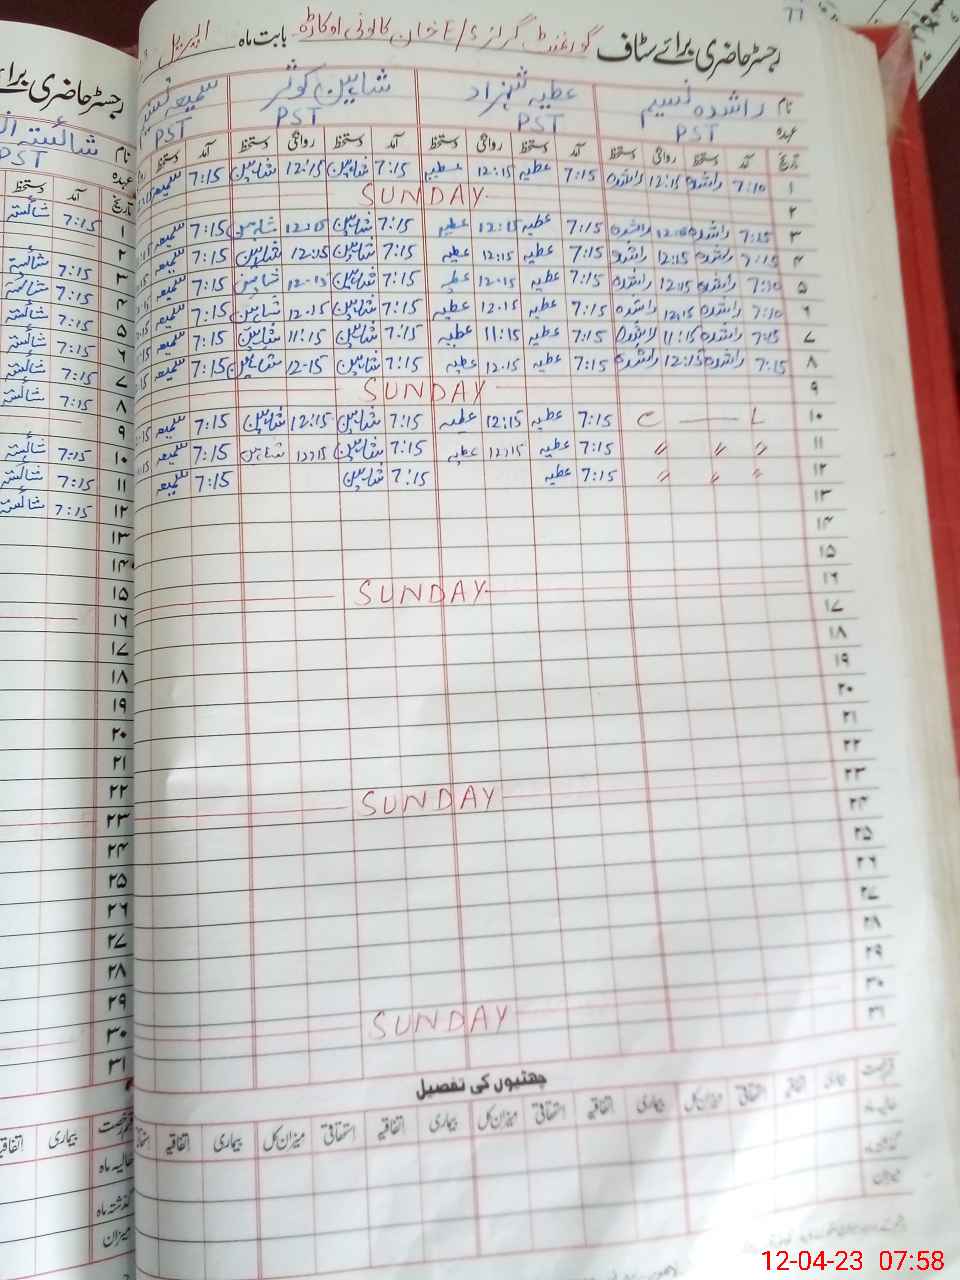 رجسٹر حاضری برائے سٹاف گورنمنٹ گرلز E/S خان کالونی اوکاڑہ بابت ماہ اپریل
نام راشدہ نسیم عطیہ شہزاد شاہین کوثر سمیعہ
عہدہ PST PST PST PST
تاریخ آمد دستخط روانگی دستخط آمد دستخط روانگی دستخط آمد دستخط روانگی دستخط آمد دستخط
۱ 7:10 راشدہ 12:15 راشدہ 7:15 عطیہ 12:15 عطیہ 7:15 شاہین 12:15 شاہین 7:15 سمیعہ
۲ SUNDAY
۳ 7:15 راشدہ راشدہ 7:15 عطیہ 12:15 عطیہ 7:15 شاہین 12:15 شاہین 7:15 سمیعہ
۴ 7:15 راشدہ 12:15 راشدہ 7:15 عطیہ 12:15 عطیہ 7:15 شاہین 12:15 شاہین 7:15 سمیعہ
۵ 7:10 راشدہ 12:15 راشدہ 7:15 عطیہ 12:15 عطیہ 7:15 شاہین 12:15 شاہین 7:15 سمیعہ
۶ 7:10 راشدہ 12:15 راشدہ 7:15 عطیہ 12:15 عطیہ 7:15 شاہین 12:15 شاہین 7:15 سمیعہ
۷ 7:15 راشدہ 11:15 راشدہ 7:15 عطیہ 11:15 عطیہ 7:15 شاہین 11:15 شاہین 7:15 سمیعہ
۸ 7:15 راشدہ 12:15 راشدہ 7:15 عطیہ 12:15 عطیہ 7:15 شاہین 12:15 شاہین 7:15 سمیعہ
۹ SUNDAY
۱۰ 7:15 عطیہ 12:15 عطیہ 7:15 شاہین 12:15 شاہین 7:15 سمیعہ
۱۱ " " " 7:15 عطیہ 12:15 عطیہ 7:15 شاہین 12:15 شاہین 7:15 سمیعہ
۱۲ " " " 7:15 عطیہ 7:15 شاہین 7:15 سمیعہ
۱۳
۱۴
۱۵
۱۶ SUNDAY
۱۷
۱۸
۱۹
۲۰
۲۱
۲۲
۲۳ SUNDAY
۲۴
۲۵
۲۶
۲۷
۲۸
۲۹
۳۰ SUNDAY
۳۱
چھٹیوں کی تفصیل
بیماری اتفاقیہ استحقاقی میزان کل بیماری اتفاقیہ استحقاقی میزان کل بیماری اتفاقیہ استحقاقی میزان کل بیماری اتفاقیہ
حالیہ ماہ
گذشتہ ماہ
میزان
رجسٹر حاضری
نام شائستہ
عہدہ PST
تاریخ آمد دستخط
۱ 7:15 شائستہ
۲
۳ 7:15 شائستہ
۴ 7:15 شائستہ
۵ 7:15 شائستہ
۶ 7:15 شائستہ
۷ 7:15 شائستہ
۸ 7:15 شائستہ
۹
۱۰ 7:15 شائستہ
۱۱ 7:15 شائستہ
۱۲ 7:15 شائستہ
۱۳
۱۴
۱۵
۱۶
۱۷
۱۸
۱۹
۲۰
۲۱
۲۲
۲۳
۲۴
۲۵
۲۶
۲۷
۲۸
۲۹
۳۰
۳۱
قسم رخصت بیماری اتفاقیہ
حالیہ ماہ
گذشتہ ماہ
میزان
12-04-23 07:58